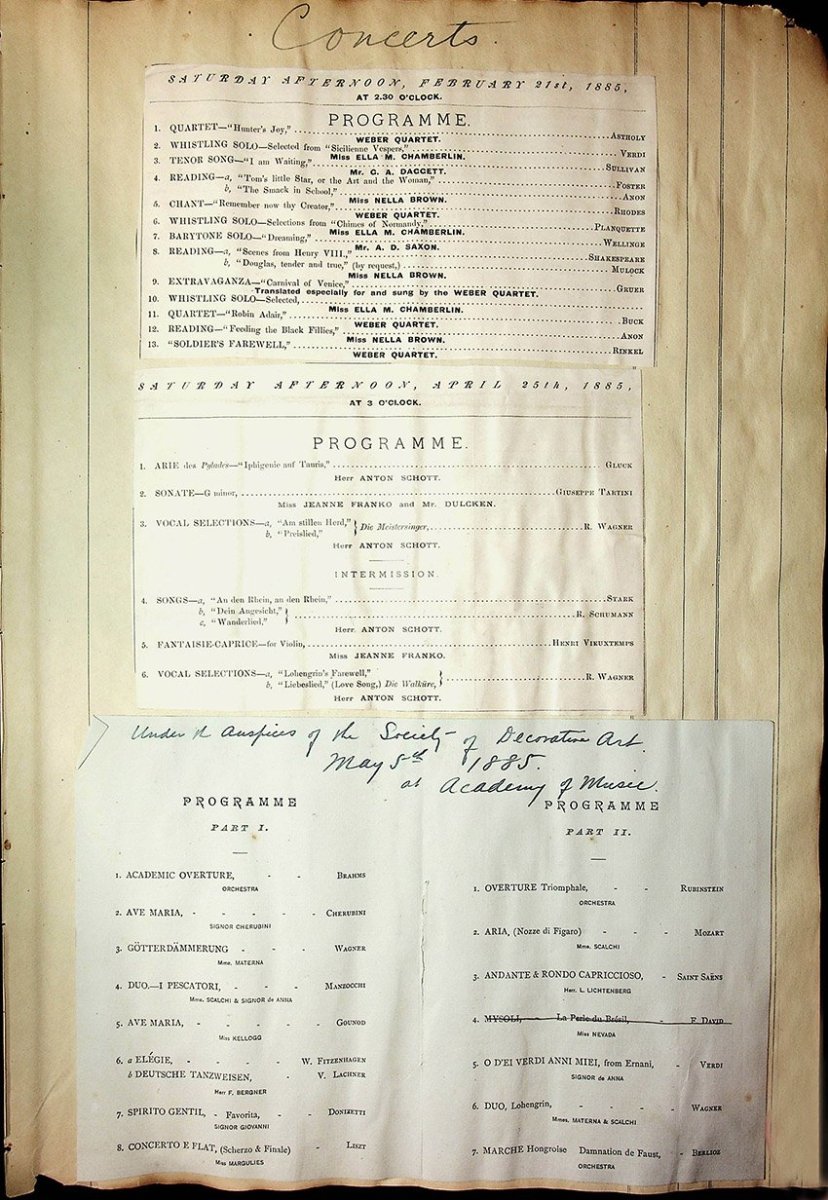 Concerts.
SATURDAY AFTERNOON, FEBRUARY 21st, 1885,
AT 2.30 O'CLOCK.
PROGRAMME.
1. QUARTET—"Hunter's Joy," ASTHOLY
WEBER QUARTET.
2. WHISTLING SOLO—Selected from "Sicilienne Vespers," VERDI
Miss ELLA M. CHAMBERLIN.
3. TENOR SONG—"I am Waiting," SULLIVAN
Mr. C. A. DAGGETT.
4. READING—a, "Tom's little Star, or the Art and the Woman," FOSTER
b, "The Smack in School," ANON
Miss NELLA BROWN.
5. CHANT—"Remember now thy Creator," RHODES
WEBER QUARTET.
6. WHISTLING SOLO—Selections from "Chimes of Normandy," PLANQUETTE
Miss ELLA M. CHAMBERLIN.
7. BARYTONE SOLO—"Dreaming," WELLINGE
Mr. A. D. SAXON.
8. READING—a, "Scenes from Henry VIII.," SHAKESPEARE
b, "Douglas, tender and true," (by request,) MULOCK
Miss NELLA BROWN.
9. EXTRAVAGANZA—"Carnival of Venice," GRUER
Translated especially for and sung by the WEBER QUARTET.
10. WHISTLING SOLO—Selected,
Miss ELLA M. CHAMBERLIN.
11. QUARTET—"Robin Adair," BUCK
WEBER QUARTET.
12. READING—"Feeding the Black Fillies," ANON
Miss NELLA BROWN.
13. "SOLDIER'S FAREWELL," RINKEL
WEBER QUARTET.
SATURDAY AFTERNOON, APRIL 25th, 1885,
AT 3 O'CLOCK.
PROGRAMME.
1. ARIE des Pylades—"Iphigenie auf Tauris," GLUCK
Herr ANTON SCHOTT.
2. SONATE—G minor, GIUSEPPE TARTINI
Miss JEANNE FRANKO and Mr. DULCKEN.
3. VOCAL SELECTIONS—a, "Am stillen Herd," Die Meistersinger, R. WAGNER
b, "Preislied,"
Herr ANTON SCHOTT.
INTERMISSION.
4. SONGS—a, "An den Rhein, an den Rhein," STARK
b, "Dein Angesicht," R. SCHUMANN
c, "Wanderlied,"
Herr ANTON SCHOTT.
5. FANTAISIE-CAPRICE—for Violin, HENRI VIEUXTEMPS
Miss JEANNE FRANKO.
6. VOCAL SELECTIONS—a, "Lohengrin's Farewell," R. WAGNER
b, "Liebeslied," (Love Song,) Die Walküre,
Herr ANTON SCHOTT.
Under the Auspices of the Society of Decorative Art.
May 5th 1885.
at Academy of Music.
PROGRAMME
PART I.
1. ACADEMIC OVERTURE, - - BRAHMS
ORCHESTRA
2. AVE MARIA, - - - - - CHERUBINI
SIGNOR CHERUBINI
3. GÖTTERDÄMMERUNG - - - WAGNER
Mme. MATERNA
4. DUO.—I PESCATORI, - - - MANZOCCHI
Mme. SCALCHI & SIGNOR de ANNA
5. AVE MARIA, - - - - - GOUNOD
Miss KELLOGG
6. a ELÉGIE, - - - - W. FITZENHAGEN
b DEUTSCHE TANZWEISEN, - V. LACHNER
Herr F. BERGNER
7. SPIRITO GENTIL, - Favorita, - - DONIZETTI
SIGNOR GIOVANNI
8. CONCERTO E FLAT, (Scherzo & Finale) - LISZT
Miss MARGULIES
PROGRAMME
PART II.
1. OVERTURE Triomphale, - - RUBINSTEIN
ORCHESTRA
2. ARIA, (Nozze di Figaro) - - - MOZART
Mme. SCALCHI
3. ANDANTE & RONDO CAPRICCIOSO, - SAINT SAËNS
Herr. L. LICHTENBERG
4. MYSOLI, - - La Perle du Brésil, - F. DAVID
Miss NEVADA
5. O D'EI VERDI ANNI MIEI, from Ernani, - VERDI
SIGNOR de ANNA
6. DUO, Lohengrin, - - - - - WAGNER
Mmes. MATERNA & SCALCHI
7. MARCHE Hongroise Damnation de Faust, - BERLIOZ
ORCHESTRA